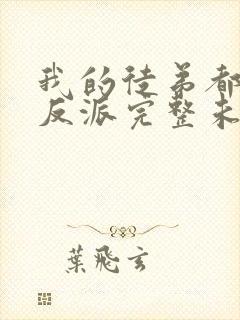 我的徒弟都
反派完整未
葉飛玄